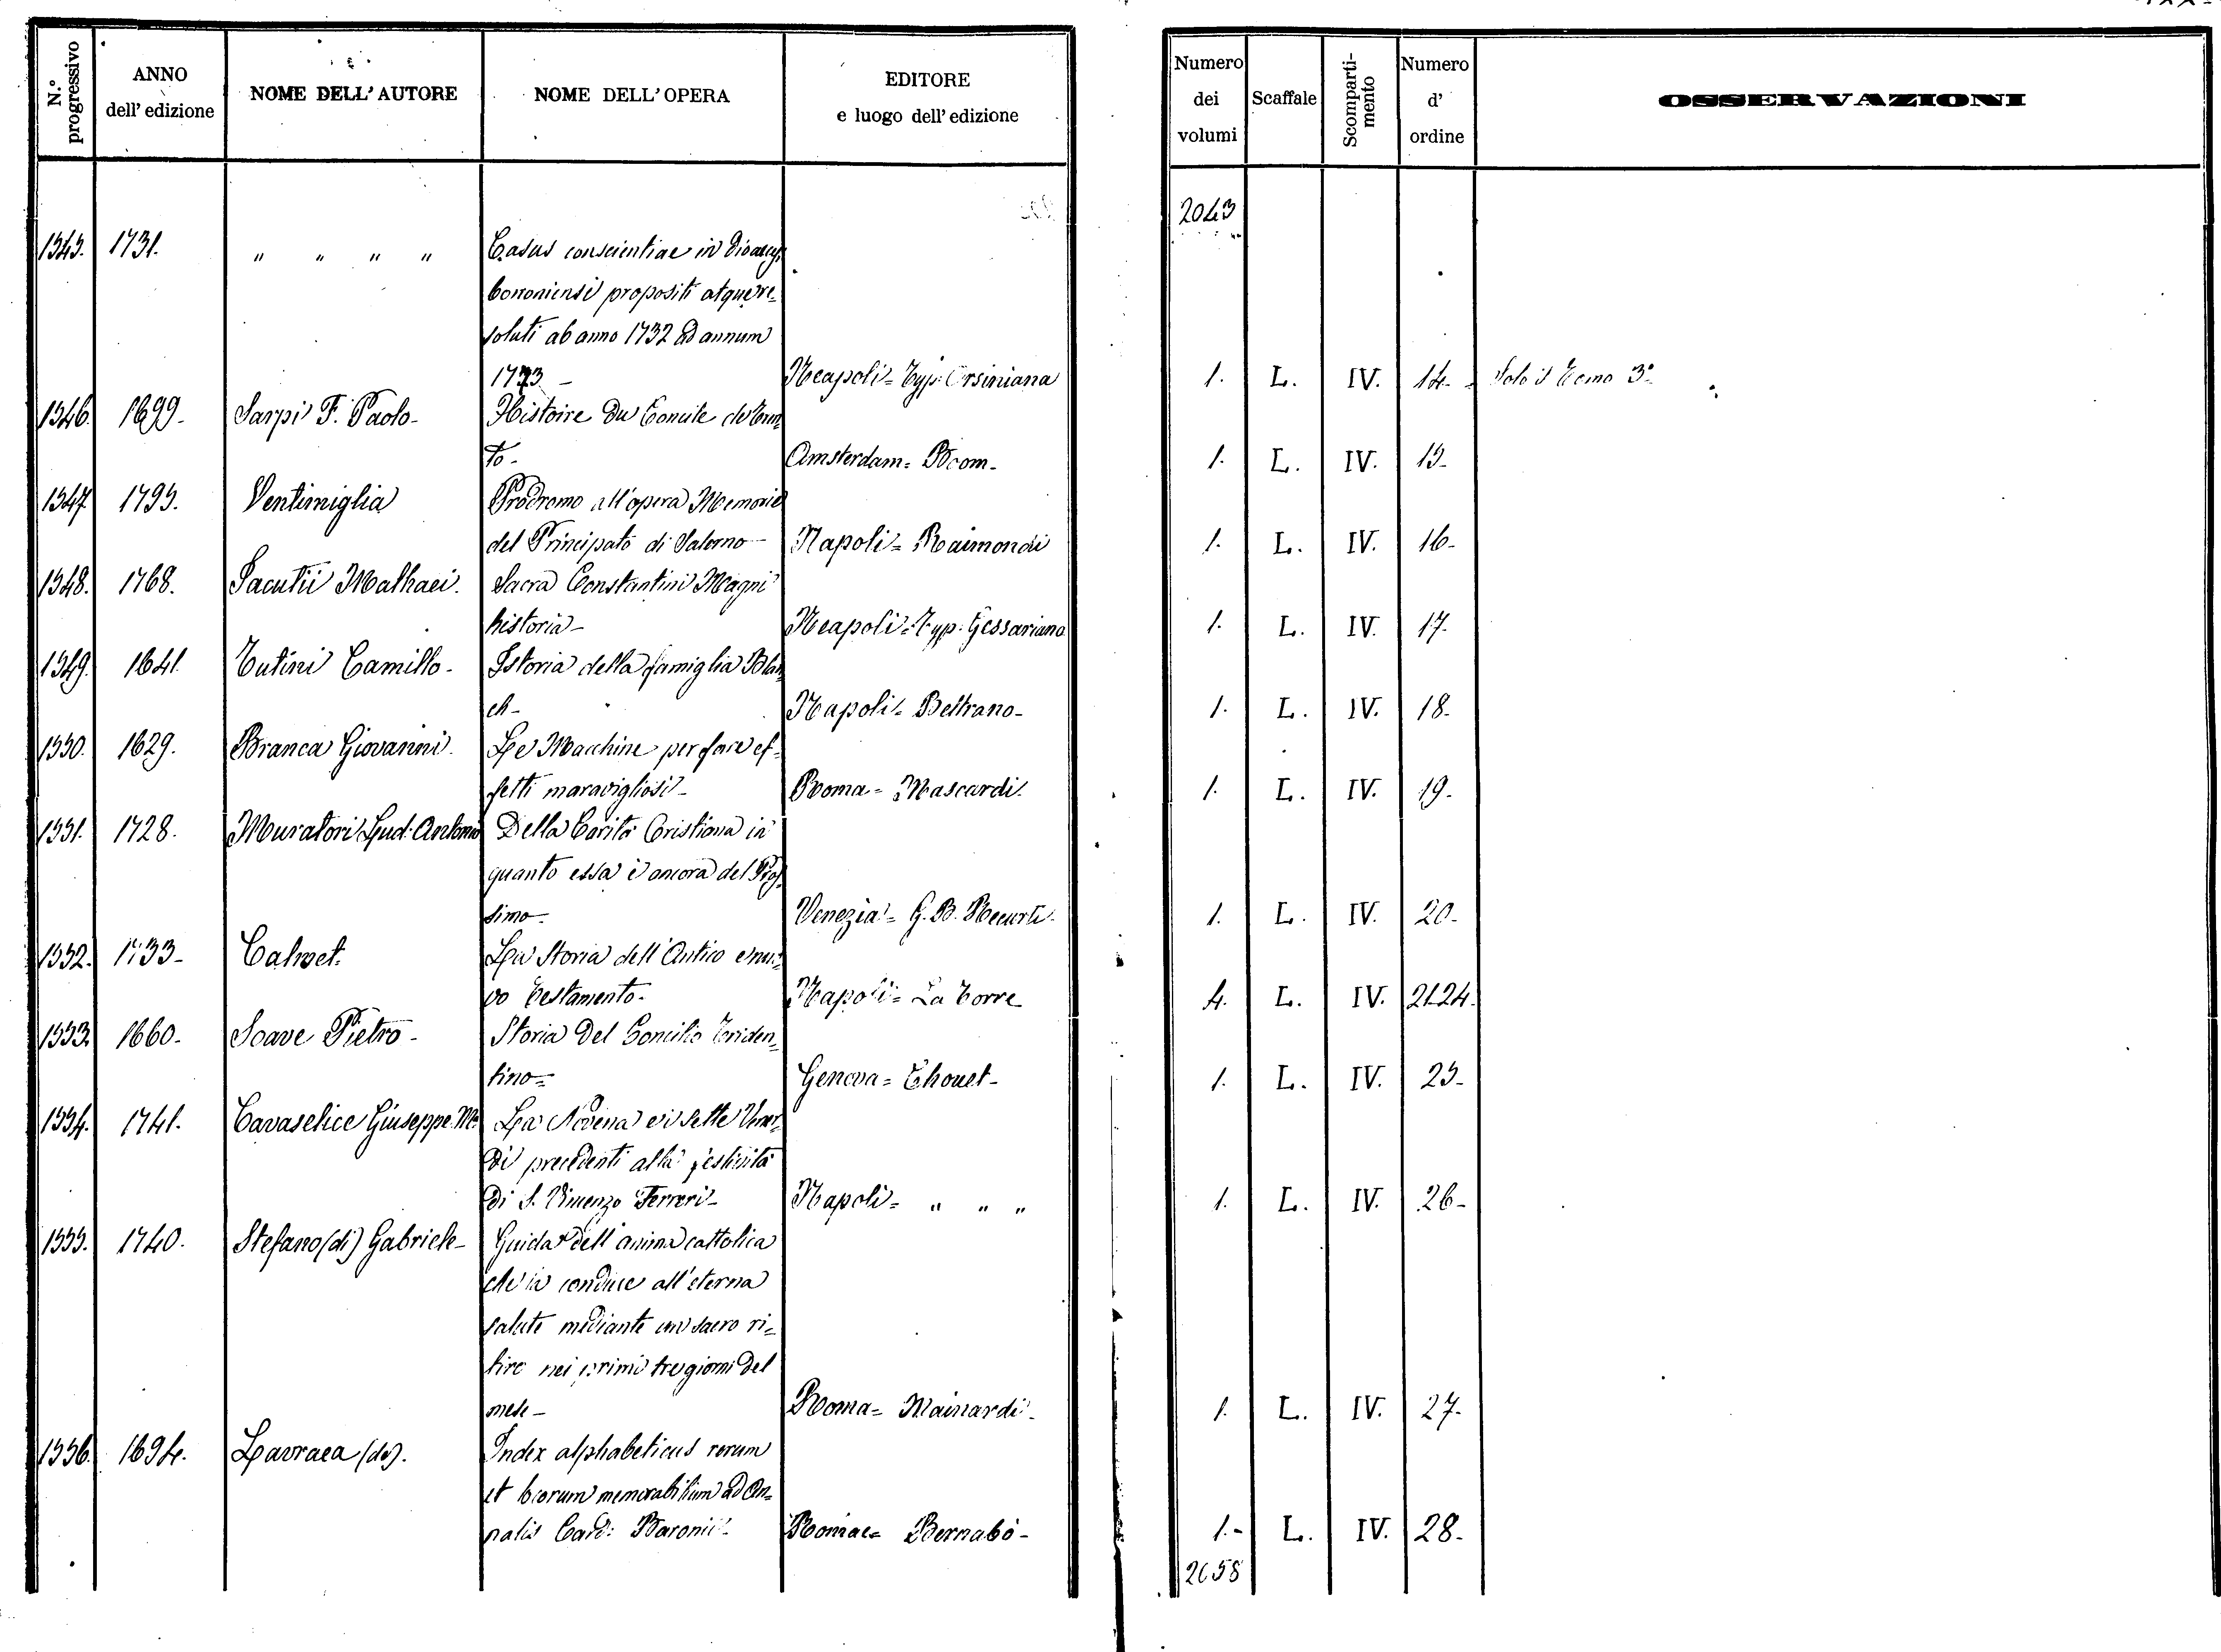 N.° progressivo
ANNO dell' edizione
NOME DELL' AUTORE
NOME DELL' OPERA
EDITORE e luogo dell' edizione
Numero dei volumi
Scaffale
Scomparti-mento
Numero d' ordine
OSSERVAZIONI
2043
1545. 1731. " " " " Casus conscientiae in
bononiensi propositi atque re-
soluti ab anno 1732 ad annum
1773 - Neapoli = Typ: Orsiniana 1. L. IV. 14. Solo il Tomo 3°.
1546. 1699. Sarpi F. Paolo - Histoire du Concile de Tren-
to - Amsterdam = 1. L. IV. 15-
1547. 1795. Ventimiglia Prodromo all'opera Memorie
del Principato di Salerno - Napoli = Raimondi 1. L. IV. 16-
1548. 1768. Sacutii Mathaei. Sacra Constantini Magni
historia - Neapoli = Typ: Gessariana 1. L. IV. 17.
1549. 1641. Tutini Camillo - Istoria della famiglia Blan-
ch - Napoli = Beltrano - 1. L. IV. 18-
1550. 1629. Branca Giovanni. Le Macchine per fare ef-
fetti maravigliosi - Roma = Mascardi. 1. L. IV. 19-
1551. 1728. Muratori Lud. Antonio Della Carità Cristiana in
quanto essa è amore del Pros-
simo - Venezia = G. B. Recurti. 1. L. IV. 20-
1552. 1733- Calmet. La Storia dell'Antico e nuo-
vo Testamento - Napoli = La Torre 4. L. IV. 21.24.
1553. 1660- Soave Pietro - Storia del Concilio Triden-
tino = Geneva = Chouet - 1. L. IV. 25-
1554. 1741. Cavaselice Giuseppe M. La Novena e i sette Vener-
di precedenti alla festività
di S. Vincenzo Ferreri - Napoli = " " " 1. L. IV. 26-
1555. 1740. Stefano (di) Gabriele - Guida dell'anima cattolica
che la conduce all'eterna
salute mediante un sacro ri-
tiro nei primi tre giorni del
mese - Roma = Mainardi - 1. L. IV. 27-
1556. 1694. Lavraea (de). Index alphabeticus rerum
et locorum memorabilium ad An-
nalis Card: Baronii - Romae = Bernabò - 1.- L. IV. 28-
2058